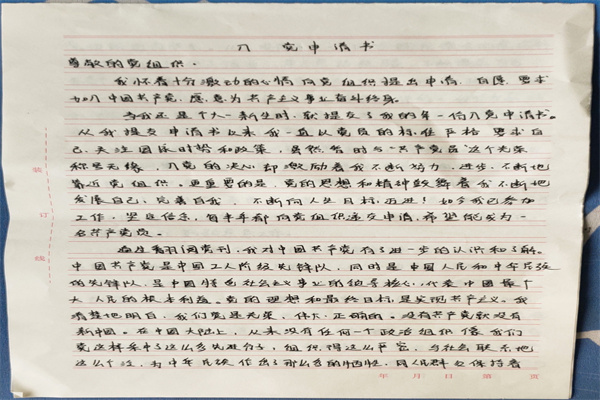 入党申请书
尊敬的党组织:
我怀着十分激动的心情向党组织提出申请,自愿要求
加入中国共产党,愿意为共产主义事业奋斗终身。
当我还是个大一新生时,就提交了我的第一份入党申请书。
从我提交申请书以来我一直以党员的标准严格要求自
己,关注国际时势和政策,虽然暂时与"共产党员"这个光荣
称号无缘,入党的决心却激励着我不断努力,进步,不断地
靠近党组织。更重要的是,党的思想和精神鼓舞着我不断地
发展自己,完善自我,不断向人生目标迈进!如今我已参加
工作,坚定信念,每半年都向党组织递交申请,希望能成为一
名共产党员。
我对中国共产党有了进一步的认识和了解。
中国共产党是中国工人阶级先锋队,同时是中国人民和中华民族
的先锋队,是中国特色社会主义事业的领导核心,代表中国最广
大人民的根本利益。党的理想和最终目标是实现共产主义。我
清楚地明白,我们党是光荣、伟大、正确的。没有共产党就没有
新中国。在中国大陆上,从来没有任何一个政治组织像我们
党这样集中了这么多先进分子,组织得这么严密,与社会联系地
这么广泛,为中华民族作出了那么多的牺牲,同人民群众保持着
装
订
线
年 月 日 第 页